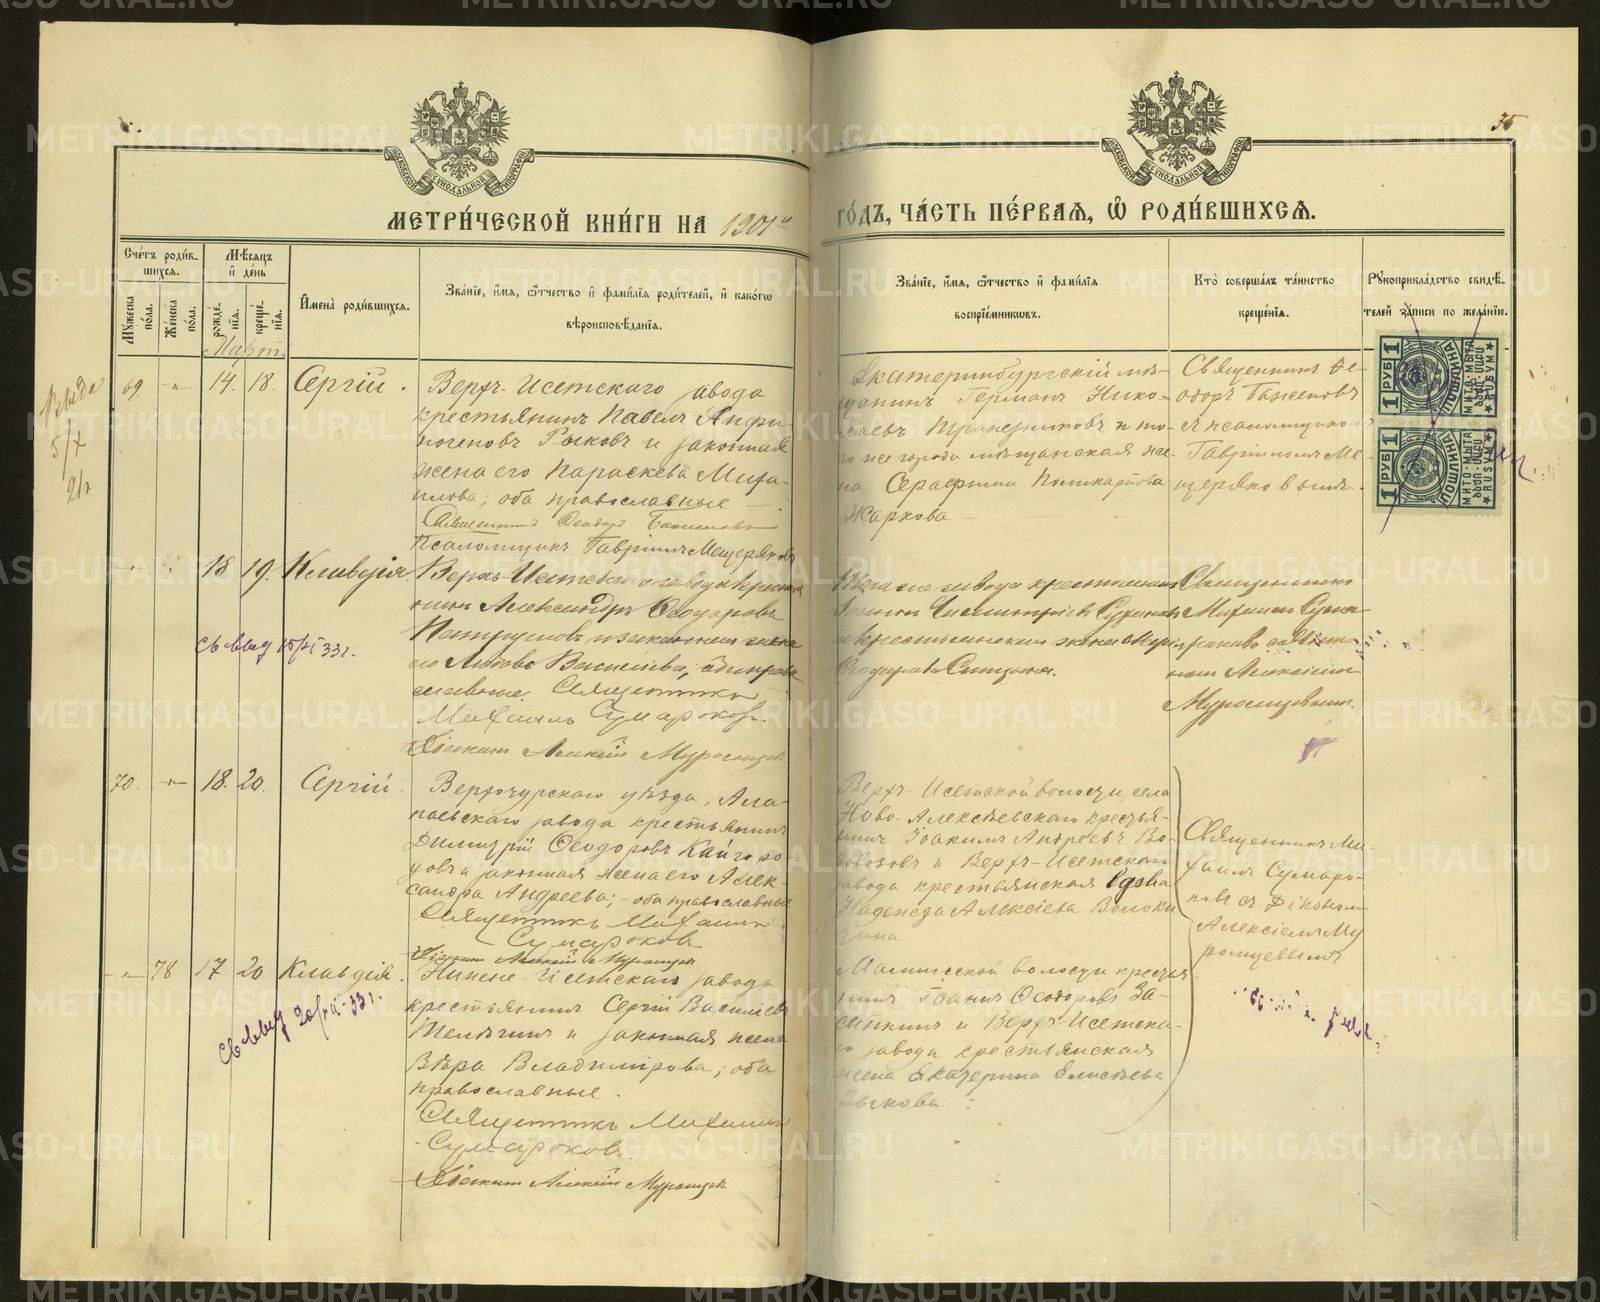 35
МЕТРИ́ЧЕСКОЙ КНИ́ГИ НА 1901й
ГО́ДЪ, ЧА́СТЬ ПЕ́РВАЯ, Ѡ РОДИ́ВШИХСЯ.
Сче́тъ роди́в-
шихся.
Мѣ́сяцъ
и҆ де́нь
Мꙋжеска
по́ла.
Же́нска
по́ла.
рожде́-
нїя.
креще́-
нїя.
И҆мена̀ роди́вшихся.
Зва́нїе, и҆́мя, ѻ҆́тчество и҆ фами́лїя роди́телей, и҆ како́гѡ
вѣроисповѣ́данїя.
Зва́нїе, и҆́мя, ѻ҆́тчество и҆ фами́лїя
воспрїе́мниковъ.
Кто̀ соверша́лъ та́инство
креще́нїя.
Рꙋкоприкла́дство свидѣ́-
телей за́писи по жела́нїю.
Мартъ
69 -"- 14. 18. Сергій.
Верхъ-Исетскаго завода
крестьянинъ Павелъ Анфи-
ногеновъ Рыковъ и законная
жена его Параскева Миха-
илова; оба православные
Священникъ Ѳеодоръ Баженовъ
Псаломщикъ Гавріилъ Мещеряковъ
Екатеринбургскій мѣ-
щанинъ Германъ Нико-
лаевъ Трапезниковъ и то-
го же города мѣщанская же-
на Серафима Поликарпова
Жаркова
Священникъ Ѳе-
одоръ Баженовъ
съ псаломщико
Гавріиломъ Ме-
щеряковымъ.
1 РУБ 1
ПОШЛИНА
1 РУБ 1
ПОШЛИНА
18 19. Клавдія.
Верхъ-Исетскаго завода крестья
нинъ Александръ Ѳеодоровъ
и законная жена
его Васильева; оба право
славные Священникъ
Михаилъ Сумароковъ.
Діаконъ Алексій Муромцевъ
завода крестьянинъ
и крестьянская жена Марія
Ѳеодорова
Священникъ
Михаилъ Сума
роковъ съ діако
номъ Алексіемъ
Муромцевымъ.
св выд 15/XI 33 г.
70. -"- 18. 20. Сергій.
Верхотурскаго уѣзда, Ала-
паевскаго завода крестьянинъ
Димитрій Ѳеодоровъ Кайгоро-
довъ и законная жена его Алек-
сандра Андреева; - оба православные
Священникъ Михаилъ
Сумароковъ
Діаконъ Алексій Муромцевъ
Верхъ-Исетской волости, села
Ново-Алексѣевскаго крестья-
нинъ Іоакимъ Андреевъ Во-
довозовъ и Верхъ-Исетскаго
завода крестьянская вдова
Надежда Алексіева
Священникъ Ми-
хаилъ Сумаро-
ковъ съ діакономъ
Алексіемъ Му
ромцевымъ
-"- 78 17 20 Клавдія.
Нижне Исетскаго завода
крестьянинъ Сергій Василіевъ
и законная жена
Вѣра Владимірова; оба
православные.
Священникъ Михаилъ
Сумароковъ.
Діаконъ Алексій Муромцевъ
волости крестья
нинъ Іоаннъ Ѳеодоровъ За-
сыпкинъ и Верхъ-Исетска-
го завода крестьянская
жена Екатерина Елисѣева
Зыкова
св выд 20/VII-33 г.
METRIKI.GASO-URAL.RU